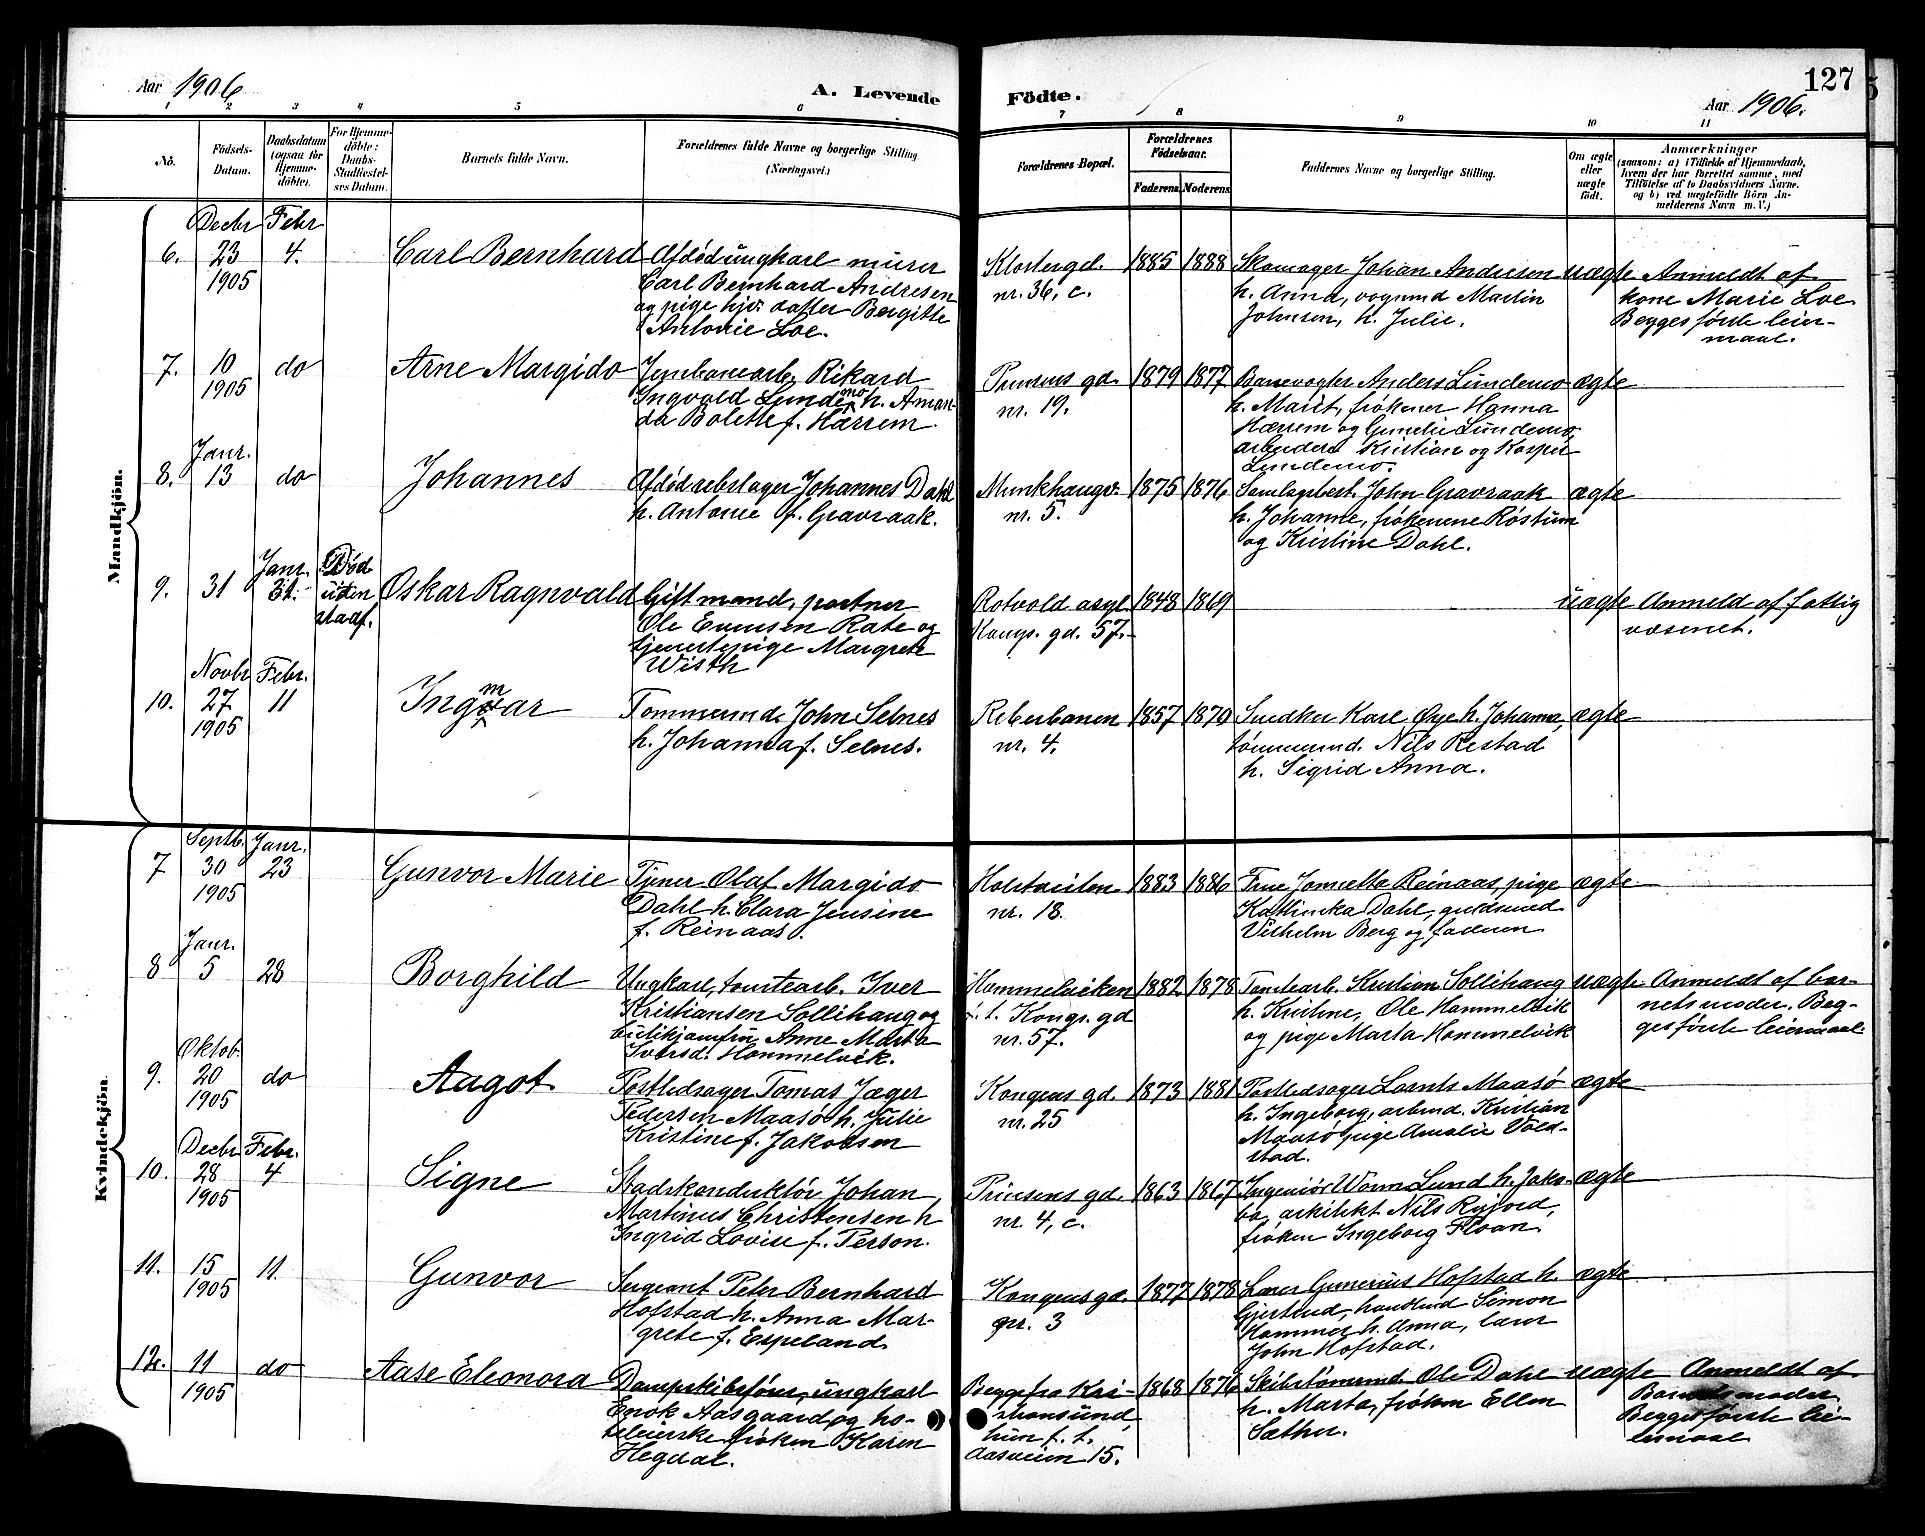 Aar 1906
A. Levende
Födte.
127
Aar 1906.
1 2 3 4 5 6 7 8 9 10 11
No.
Födsels-
Datum.
Daabsdatum
(ogsaa for
Hjemme-
döbte).
For Hjemme-
döbte:
Daabs-
Stadfæstel-
ses Datum.
Barnets fulde Navn.
Forældrenes fulde Navne og borgerlige Stilling
(Næringsvei.)
Forældrenes Bopæl.
Forældrenes
Födselsaar.
Faderens. Moderens.
Faddernes Navne og borgerlige Stilling.
Om ægte
eller
uægte
født.
Anmærkninger
(saasom: a) i Tilfælde af Hjemmedaab,
hvem der har forrettet samme, med
Tilföielse af to Daabsvidners Navne.
og b) ved uægtefödte Börn An-
melderens Navn m. V.)
Mandkjön.
6.
Decbr
23
1905
Febr
4.
Carl Bernhard
Afdød ungkarl murer
Carl Bernhard Andresen
og pige hjv. datter Bergitte
Antonie Loe.
Klostergd.
nr. 36, c.
1885 1888
Skomager Johan Andresen
h. Anna, vognmd Martin
Johnsen, h. Julie.
uægte
Anmeldt af
kone Marie Loe.
Begges første leier-
maal.
7.
10
1905
do
Arne Margido
Jernbanearb. Rikard
Ingvald Lundemo h. Aman-
da Bolette f. Hærrem.
Prinsens gd.
nr. 19.
1879 1877
Banevogter Anders Lundemo
h. Marit, frøkener Hanna
Hærrem og Gunelie Lundemo,
arbeidere Kristian og Kasper
Lundemo.
ægte
8.
Janr.
13
do
Johannes
Afdød rebslager Johannes Dahl
h. Antonie f. Gravraak.
Munkhaugv.
nr. 5.
1875 1876
Samlagsbest. John Gravraak
h. Johanne, frøkenene Röstum
og Kristine Dahl.
ægte
9.
31
Janr.
31.
Død
uden
stadf.
Oskar Ragnvald
Gift mand, portner
Ole Evensen Rate og
tjenestepige Margrete
Wisth
Rotvold asyl
Kongs. gd. 57.
1848 1869
uægte
Anmeld af fattig
væsenet.
10.
Novbr
27
1905
Febr.
11
Ingvar
m
Tømmermd. John Selnes
h. Johanna f. Selnes.
Reberbanen
nr. 4.
1857 1870
Snedker Karl Øye h. Johanna,
tömmermd. Nils Restad
h. Sigrid Anna.
ægte
Kvindekjön.
7
Septb.
30
1905
Janr.
23
Gunvor Marie
Tjener Olaf Margido
Dahl h. Clara Jensine
f. Reinaas.
Holstveiten
nr. 18.
1883 1886
Frue Jonetta Reinaas, pige
Kathinka Dahl, guldsmd
Vilhelm Berg og faderen
ægte
8
Janr.
5
28
Borghild
Ungkarl, tomtearb. Iver
Kristiansen Sollihaug og
butikjomfru Anne Marta
Iversd. Hommelvik.
Hommelviken
f. t. Kongs. gd
nr. 57.
1882 1878
Tomtearb. Kristian Sollihaug
h. Kristine, Ole Hommelvik
og pige Marta Hommelvik
uægte
Anmeldt af bar-
nets moder. Beg-
ges förste leiermaal
9.
Oktob.
20
1905
do
Aagot
Postledsager Tomas Jæger
Pedersen Maasö h. Julie
Kristine f. Jakobsen
Kongens gd.
nr. 25
1873 1881
Postledsager Lornts Maasö
h. Ingeborg, arbmd. Kristian
Maasö, pige Amalie Vold-
stad.
ægte
10.
Decbr
28
1905
Febr.
4
Signe
Stadskonduktör Johan
Martinus Christensen h
Ingrid Lovise f. Person.
Prinsens gd.
nr. 4, c.
1863 1867
Ingeniör Worm Lund h. Jako-
ba, arkitekt Nils Ryjord,
frøken Ingeborg Floan.
ægte
11.
15
1905
11.
Gunvor
Sergeant Peter Bernhard
Hofstad h. Anna Mar-
grete f. Espeland.
Kongens gd.
nr. 3
1877 1878
Lærer Gunerius Hofstad h.
Gjertrud, handlsmd Simon
Hammer h. Anna, lærer
John Hofstad.
ægte
12.
11
1905
do
Aase Eleonora
Dampskibsfører, ungkarl
Enok Aasgaard og ho-
teleierske frøken Karen
Hegdal.
Begge fra Kri-
stiansund,
hun f. t.
Aasveien 15.
1868 1876
Skibstömmrmd. Ole Dahl
h. Marta, frøken Ellen
Sæther.
uægte
Anmeldt af
Barnets moder
Begges förste lei-
ermaal